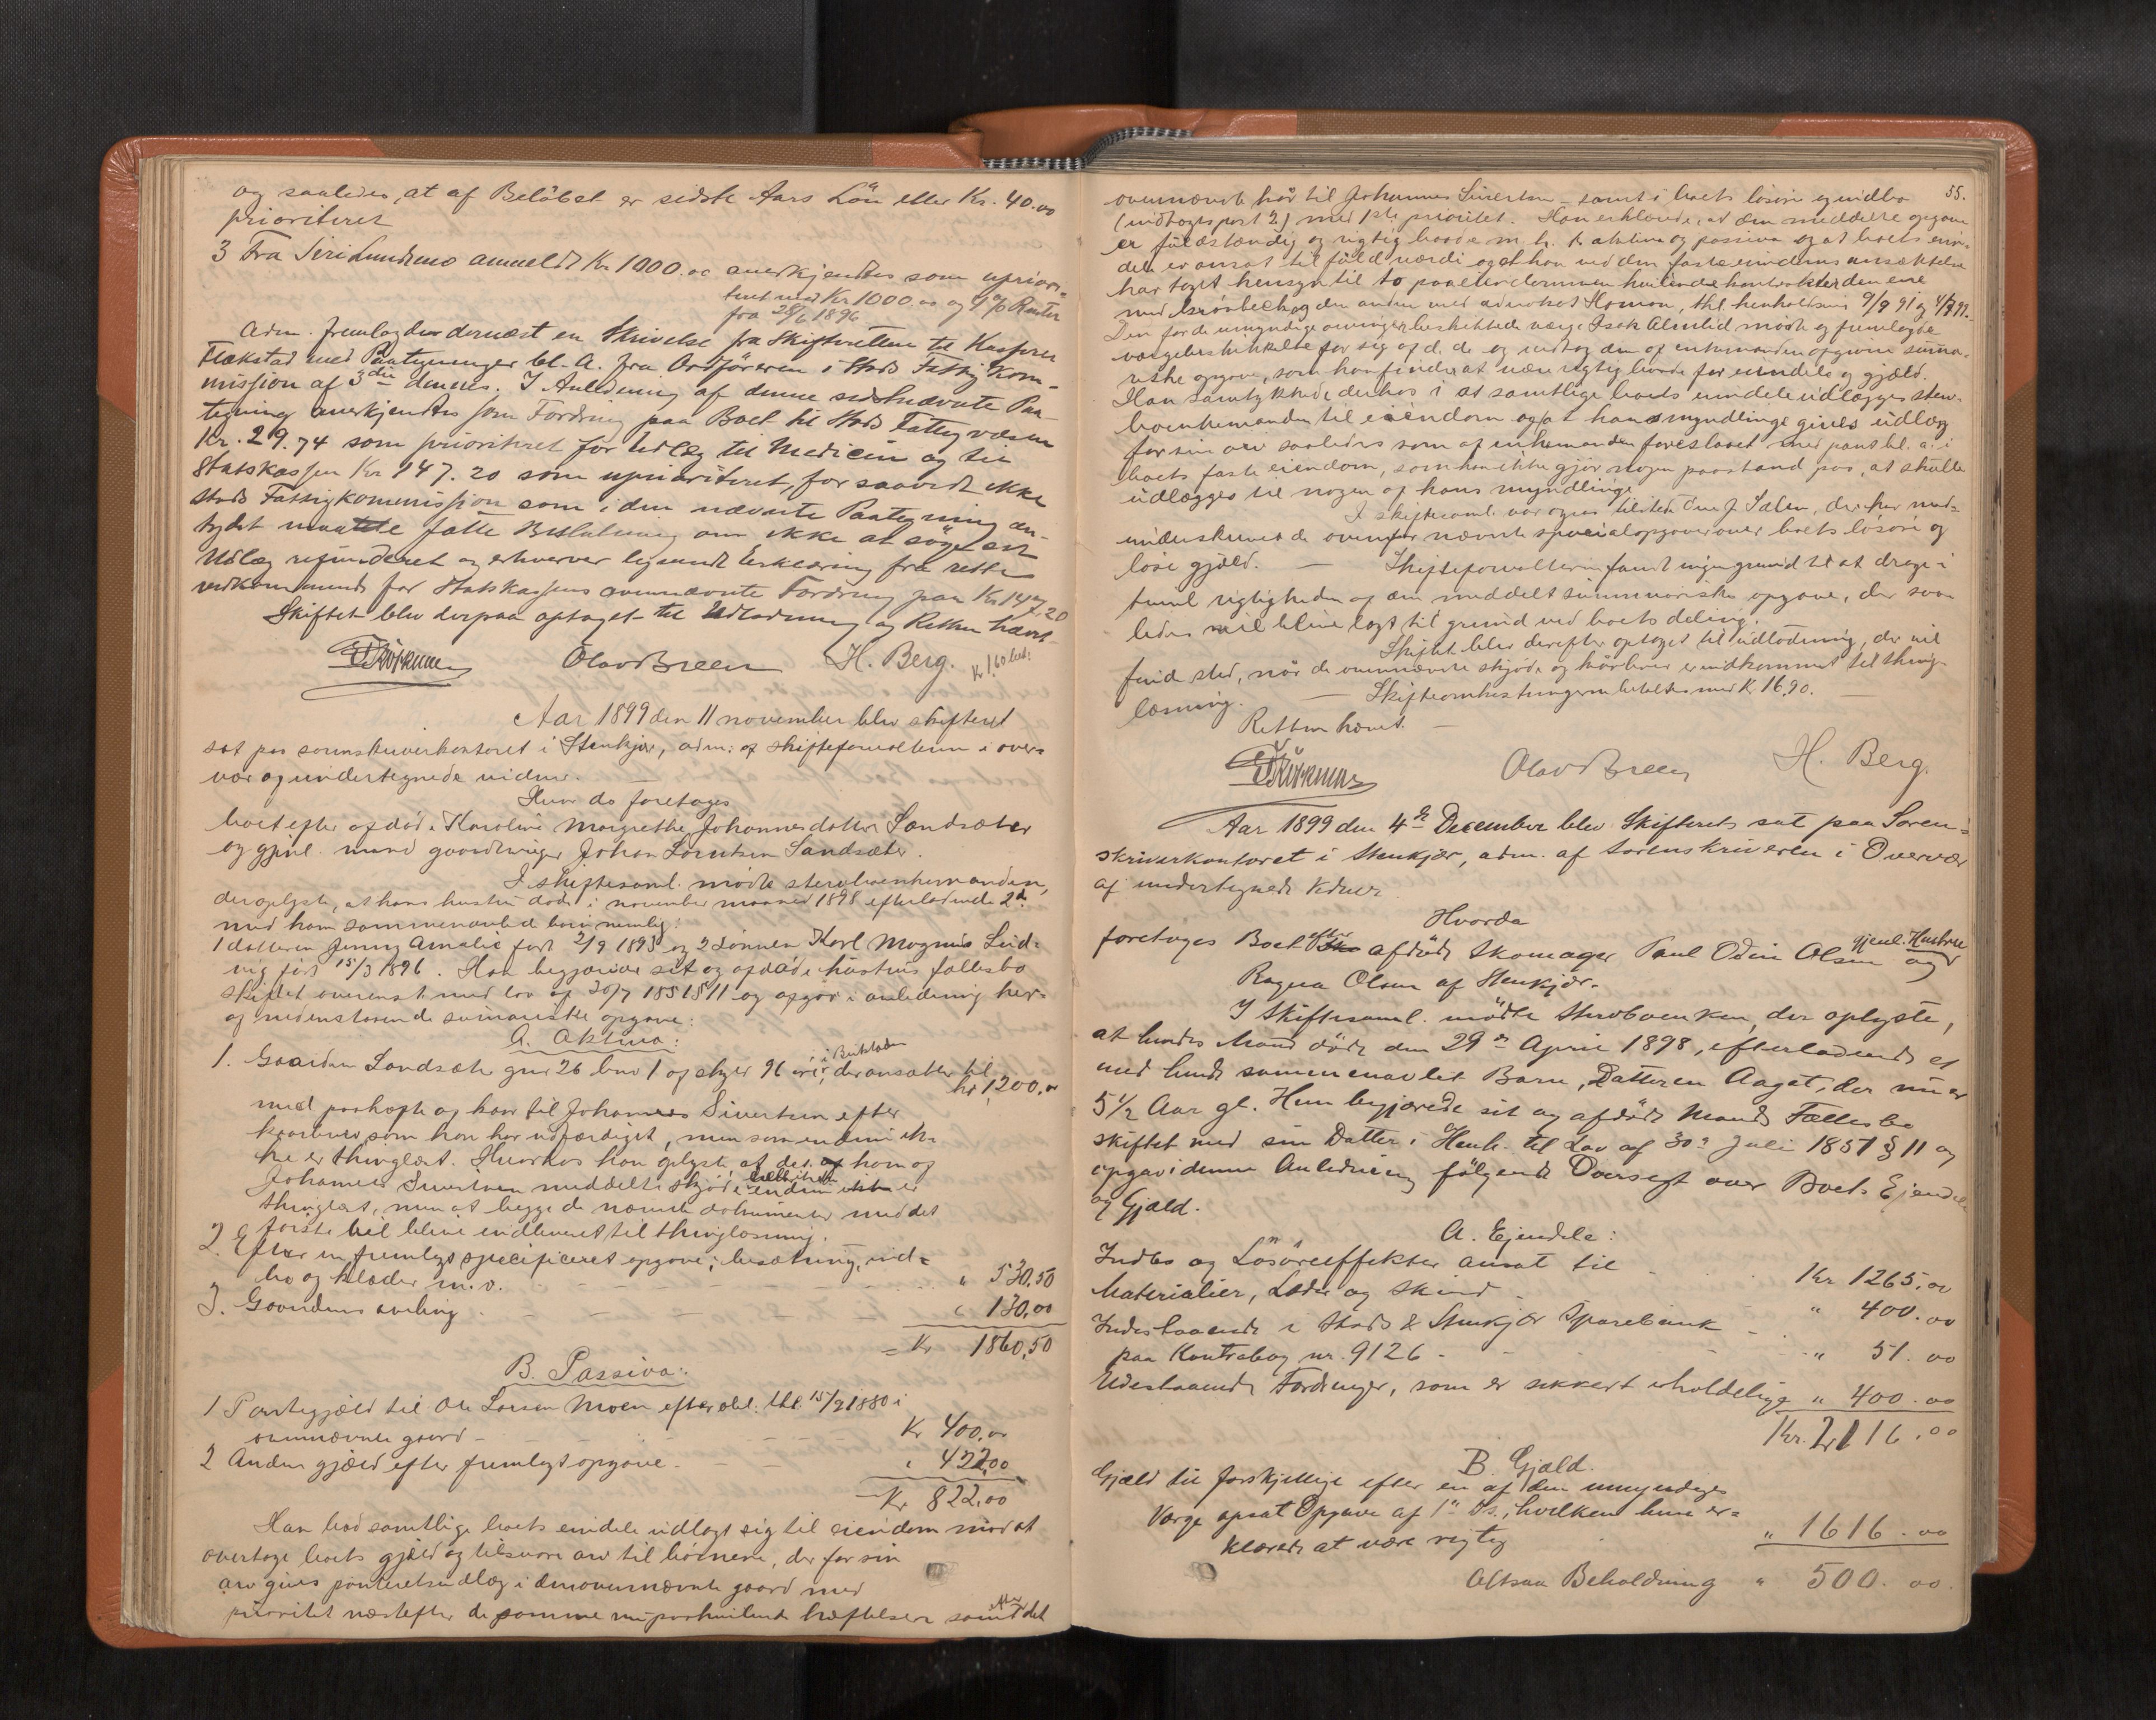 og saaledes, at af Beløbet er sidste Aars Løn eller Kr. 40.00
prioriteret
3 Fra Siri Lundemo anmeldt Kr 1000.00 anerkjendtes som uprior-
teret med Kr 1000.00 og 4% Renter
fra 28/6 1896
Adm. fremlagde dernæst en Skrivelse fra Skifteretten til Kasserer
Flækstad med Paategninger bl. A. fra Ordføreren i Stods Fattigkom-
mission af 3die dennes. I Anledning af denne sidstnævnte Paa-
tegning anerkjendtes som Fordring paa Boet til Stods Fattigvæsen
Kr. 29.74 som prioriteret for Udlæg til Medicin og til
Statskassen Kr 147.20 som uprioriteret, forsaavidt ikke
Stods Fattigkommission som i den nævnte Paategning an-
tydet maatte fatte Beslutning om ikke at søge sit
Udlæg refunderet og erhverver lignende Erklæring fra rette
vedkommende for Statskassens ovennævnte Fordring paa Kr 147.20
Skiftet blev derpaa optaget til Udlodning og Retten hævet
Olav Breen H. Berg. Kr 1,60 bet:
Aar 1899 den 11 november blev skifteret
sat paa sorenskriverkontoret i Stenkjær, adm: af skifteforvalteren i over-
vær af undertegnede vidner.
Hvor da foretages
boet efter afdøde Karoline Margrethe Johannesdatter Sandsæter
og gjenl. mand gaardbruger Johan Lorntsen Sandsæter.
I skiftesaml. mødte stervboenkemanden,
der oplyste, at hans hustru døde i november maaned 1898 efterladende 2de
med ham sammenavlede børn nemlig:
1 datteren Jenny Amalie født 2/9 1893 og 2 sønnen Karl Magnus Lud-
vig født 15/3 1896. Han begjærede sit og afdøde hustrus fællesbo
skiftet overensst. med lov af 30/7 1851 § 11 og opgav i anledning her-
af nedenstaaende summariske opgave:
A. Aktiva:
1. Gaarden Sandsæter gnr 26 bnr 1 af skyld 96 øre, i Beitstaden der ansættes til
kr 1,200.00
med paahefte og kaar til Johannes Sivertsen efter
kaarbrev, som han har udfærdiget, men som endnu ik-
ke er thinglæst. Hvorhos han oplyste, at det af ham og
Johannes Sivertsen meddelte skjøde endnu ikke er
thinglæst, men at begge de nævnte dokumenter med det
første vil blive indleveret til thinglæsning.
2. Efter en fremlagt specificeret opgave; besætning, ind-
bo og klæder m.v. " 530,50
3. Gaardens avling " 130,00
= Kr 1860,50
B. Passiva:
1 Pantegjæld til Ole Larsen Moen efter obl. thl. 15/2 1880 i
ovennævnte gaard - Kr 400,00
2 Anden gjæld efter fremlagt opgave. " 422,00
Kr 822,00
Han bad samtlige boets eiendele udlagt sig til eiendom mod at
overtage boets gjæld og tilsvare arv til børnene, der for sin
arv gives panteretsudlæg i den ovennævnte gaard med
prioritet næstefter de samme nu paahvilende hæftelser samt det
55.
ovennævnte kår til Johannes Sivertsen - samt i boets løsøre og indbo
(indtægtspost 2) med 1ste prioritet. Han erklærede, at den meddelte opgave
er fuldstændig og rigtig baade m. h. t. aktiva og passiva og at boets eien-
dele er ansat til fuld værdi og at han ved den faste eiendoms ansættelse
har taget hensyn til to paa eiendommen hvilende kontrakter den ene
med og den anden med advokat Homan, thl. henholdsvis 9/9 91 og 4/8 99.
Den for de umyndige arvinger beskikkede værge Isak Almlid mødte og fremlagde
værgebeskikkelse for sig af d. d. og vedtog den af enkemanden opgivne summa-
riske opgave, som han finder at være rigtig baade for eiendele og gjæld.
Han samtykkede derhos i at samtlige boets eiendele udlægges sterv-
boenkemanden til eiendom og at hans myndlinge gives udlæg
for sin arv saaledes som af enkemanden foreslaaet med pant bl. a. i
boets faste eiendom, som han ikke gjør nogen paastand paa, at skulle
udlægges til nogen af hans myndlinge.
I skiftesaml. var ogsaa tilstede Ole J. Salen, der har med-
underskrevet de ovenfor nævnte specialopgaver over boets løsøre og
løse gjæld. - Skifteforvalteren fandt ingen grund til at drage i
tvivl rigtigheden af den meddelte summariske opgave, der saa-
ledes vil blive lagt til grund ved boets deling.
Skiftet blev derefter optaget til udlodning, der vil
finde sted, når de ovennævnte skjøde og kårbrev er indkommet til thing-
læsning. - Skifteomkostningerne betaltes med K. 16.90.
Retten hævet.
Olav Breen H. Berg.
Aar 1899 den 4de December blev Skifteret sat paa Soren-
skriverkontoret i Stenkjær, adm. af Sorenskriveren i Overvær
af undertegnede Vidner
Hvorda
foretages Boet efter afdøde Skomager Paul Odin Olsen og gjenl. Hustru
Ragna Olsen af Stenkjær.
I Skiftesaml. mødte Stervboenken, der oplyste,
at hendes Mand døde den 29de April 1898, efterladende et
med hende sammenavlet Barn, Datteren Aagot, der nu er
5 1/2 Aar gl. Hun begjærede sit og afdøde Mands Fællesbo
skiftet med sin Datter i Henh. til Lov af 30te Juli 1851 § 11 og
opgav i denne Anledning følgende Oversigt over Boets Ejendele
og Gjæld.
A. Ejendele:
Indbo og Løsøreeffekter ansat til Kr 1265.00
Materialier, Læder og Skind " 400.00
Indestaaende i Stods & Stenkjær Sparebank
paa Kontrabog nr. 9126 " 51.00
Udestaaende Fordringer, som er sikkert erholdelige " 400.00
Kr. 2116.00
B. Gjæld.
Gjæld til forskjellige efter en af den umyndiges
Værge opsat Opgave af 1ste ds., hvilken hun er-
klærede at være rigtig " 1616.00
Altsaa Beholdning " 500.00